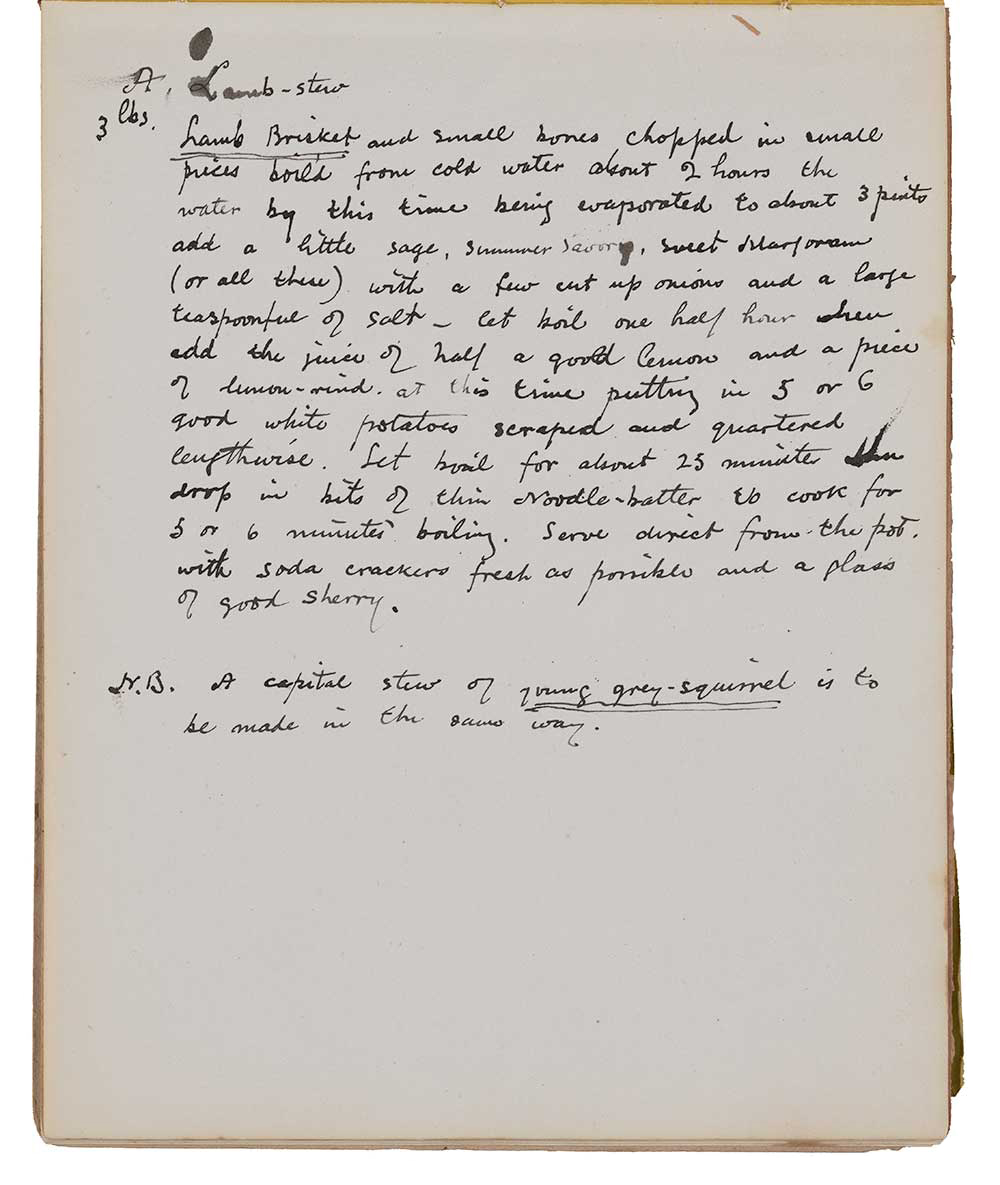 A. Lamb-stew
3 lbs.
Lamb Brisket and small bones chopped in small
pieces boil'd from cold water about 2 hours the
water by this time being evaporated to about 3 pints
add a little sage, summer savory, sweet Marjoram
(or all three) with a few cut up onions and a large
teaspoonful of salt – let boil one half hour then
add the juice of half a good lemon and a piece
of lemon-rind. at this time putting in 5 or 6
good white potatoes scraped and quartered
lengthwise. Let boil for about 25 minutes then
drop in bits of thin Noodle-batter to cook for
5 or 6 minutes boiling. Serve direct from the pot.
with soda crackers fresh as possible and a glass
of good sherry.
N.B. A capital stew of young grey-squirrel is to
be made in the same way.